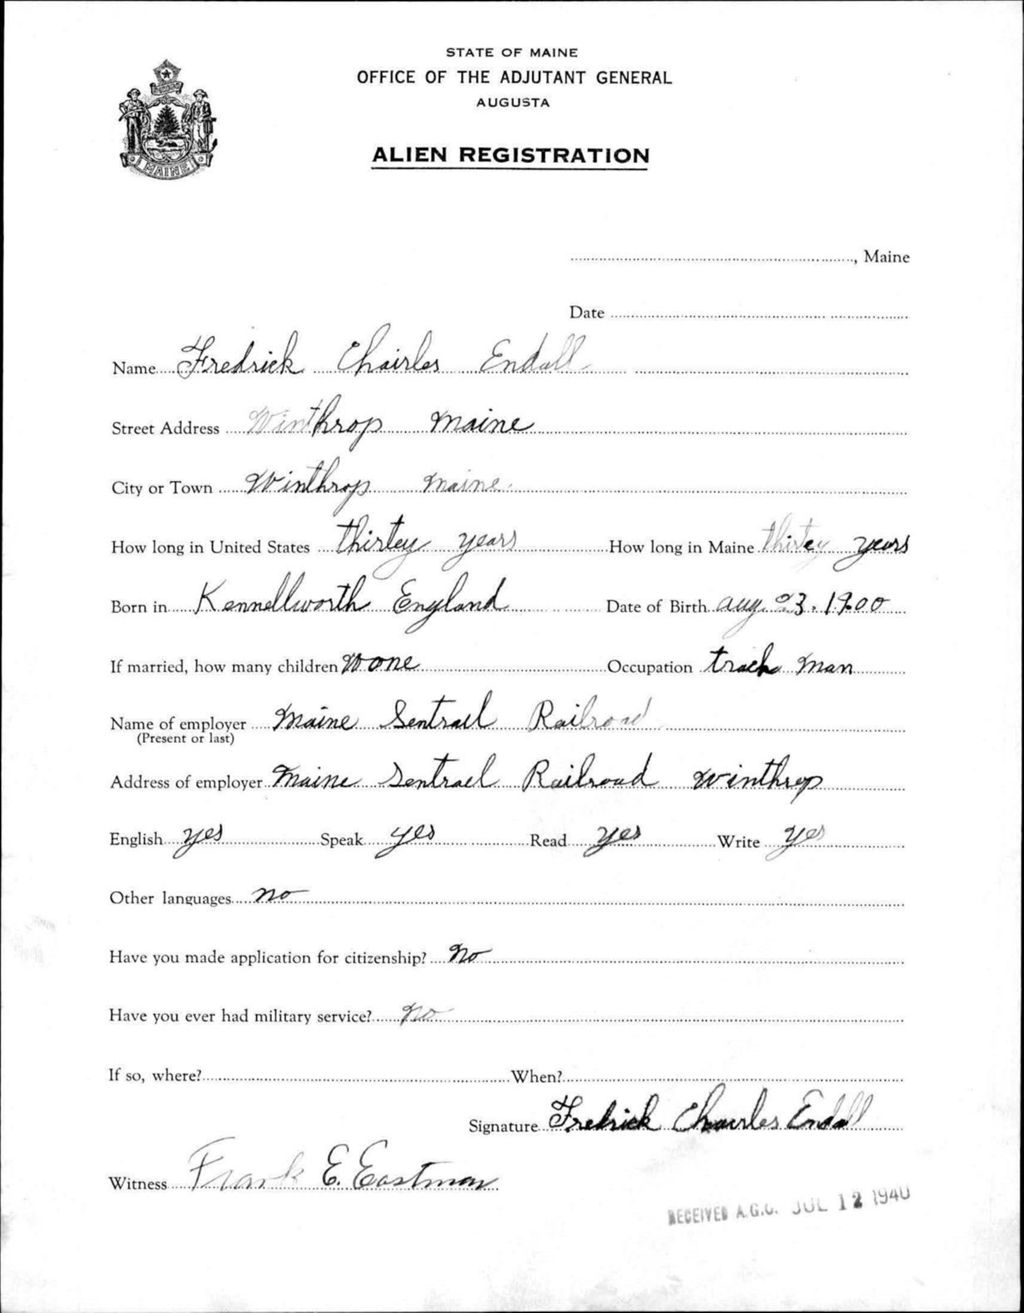 STATE OF MAINE
OFFICE OF THE ADJUTANT GENERAL
AUGUSTA
ALIEN REGISTRATION
MAINE
, Maine
Date
Name Fredrick Chairles Endall
Street Address Winthrop Maine
City or Town Winthrop Maine
How long in United States thirtey years How long in Maine thirtey years
Born in Kennellworth England Date of Birth aug. 23. 1900
If married, how many children None Occupation track man
Name of employer Maine Sentrael Railroad
(Present or last)
Address of employer Maine Sentrael Railroad Winthrop
English yes Speak yes Read yes Write yes
Other languages no
Have you made application for citizenship? No
Have you ever had military service? No
If so, where? When?
Signature Fredrick Chairles Endall
Witness Frank E. Eastman
RECEIVED A.G.O. JUL 12 1940